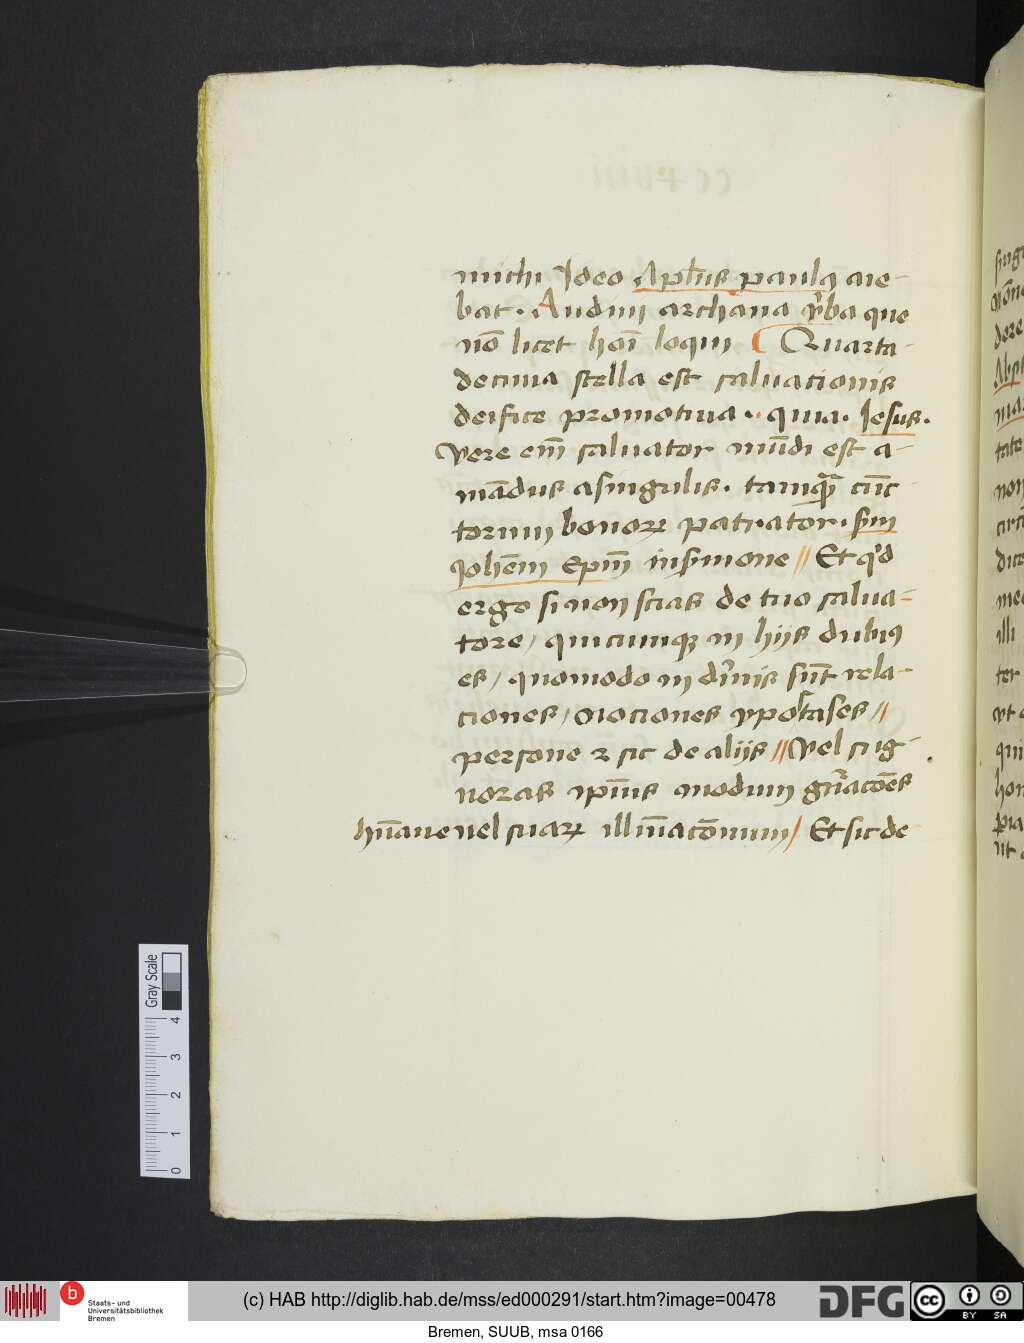 michi Ideo Apl'us paulꝰ aie-
bat. Audiui archana v̓ba que
nō licet hoī loqui Quarta-
decima stella est saluationis
deifice promotiua. quia. Iesus.
Vere em̄ saluator mūdi est a-
mādus a singulis. tamqȝ cūc
torum bonorꝝ patrator. scd'm
Ioh'em Ep̄m in s'mone // Et q'd
ergo si non scias de tuo salua-
tore / quicumqȝ in hijs dubiꝰ
es / quomodo in d'inis sūt rela-
ciones / Nociones ypostases //
persone ⁊ sic de alijs // Vel si ig-
noras ip̄ius modum gn̄acōes
hūane uel suarꝝ illūīacōnum / Et sic de
Gray Scale
0 1 2 3 4
b Staats- und
Universitätsbibliothek
Bremen
(c) HAB http://diglib.hab.de/mss/ed000291/start.htm?image=00478
DFG cc BY SA
Bremen, SUUB, msa 0166